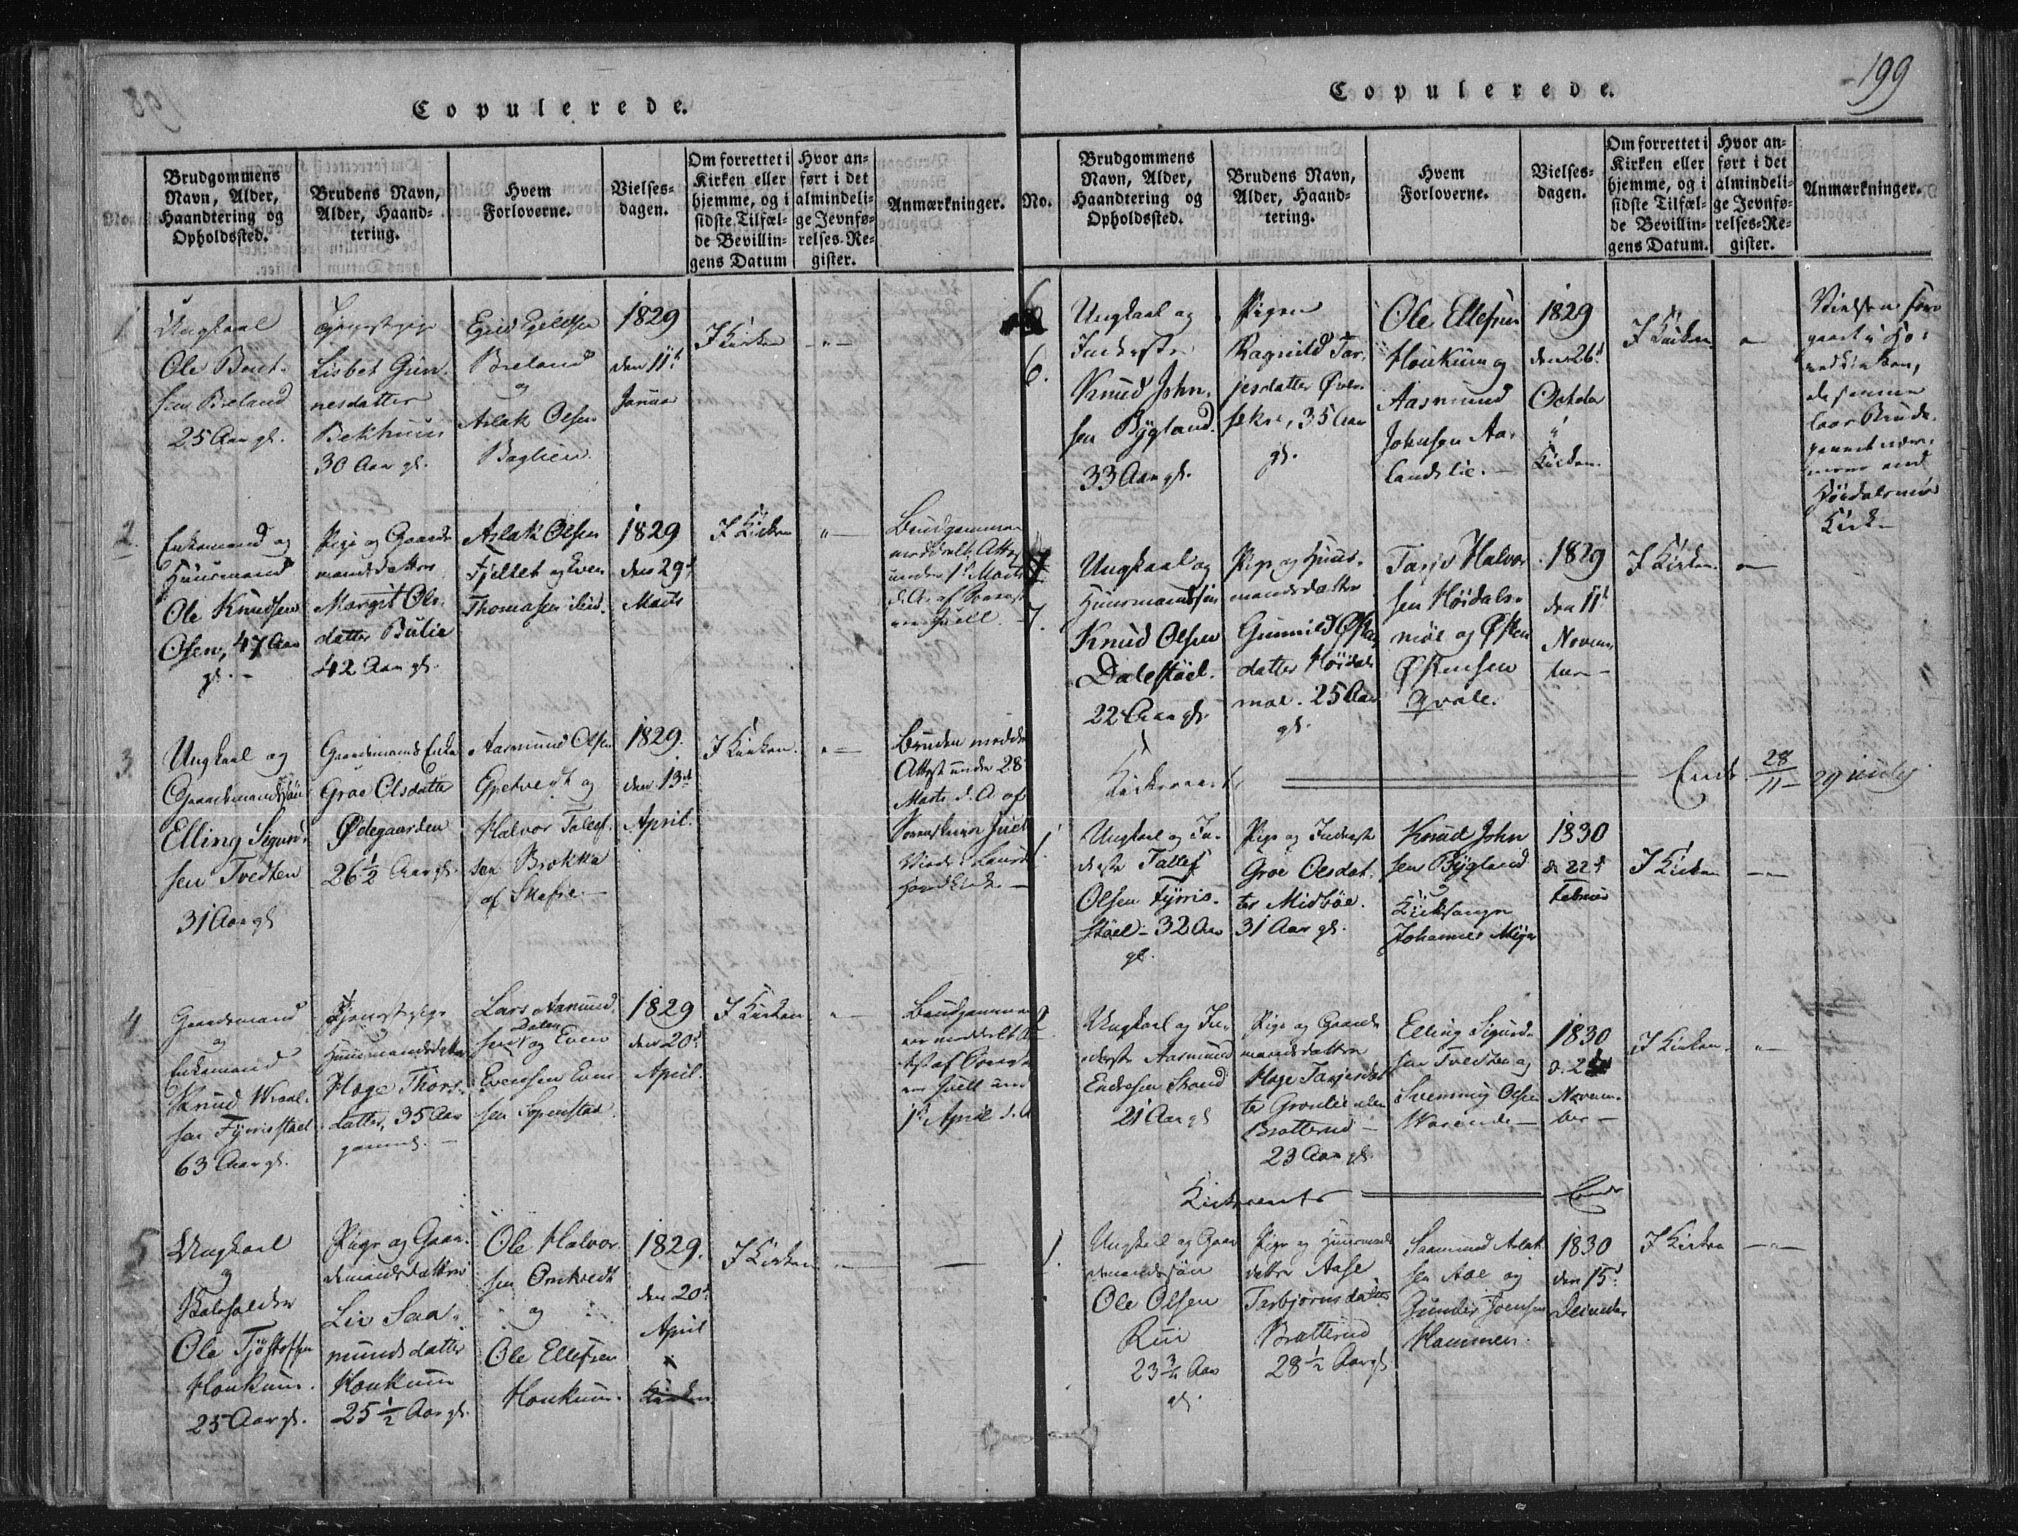 198
Copulerede.
No.
Brudgommens
Navn, Alder,
Haandtering og
Opholdssted.
Brudens Navn,
Alder, Haand-
tering.
Hvem
Forloverne.
Vielses-
dagen.
Om forrettet i
Kirken eller
hjemme, og i
sidste Tilfæl-
de Bevillin-
gens Datum
Hvor an-
ført i det
almindeli-
ge Jevnfø-
relses-Re-
gister.
Anmærkninger.
1
Ungkaal
Ole Bent-
sen Breland
25 Aar gl.
Tjenestepige
Lisbet Gun-
nesdatter
Bekhuus
30 Aar gl.
Breland
og
Aslak Olsen
Baglien.
1829
den 11te
Januar
I Kirken
2
Enkemand og
Huusmand
Ole Knudsen
Olsen, 47 Aar
gl.
Pige og Gaard-
mandsdatter
Margit Ols-
datter Bulie
42 Aar gl.
Aslak Olsen
Fjeltet og Even
Thomasen
1829
den 29de
Marts
I Kirken
Brudgommen
meddelt Attest
under 1ste Marts
d. A. af
Juell.
3
Ungkaal og
Gaardmandssøn
Elling Sigurd-
sen Tvedten
31 Aar gl.
Gaardmands Enke
Groe Olsdatter
Ødegaarden
26 1/2 Aar gl.
Aasmund Olsen
og
Halvor Tallef-
sen Brokka
af Skafse
1829.
den 13de
April.
I Kirken.
Bruden meddelt
Attest under 28
Marts d. A. af
Sorenskriver Juell
4
Gaardmand
og
Enkemand
Knud
sen Tyrristoel
63 Aar gl.
Tjenestepige
Huusmandsdatter
Hæge Thors-
datter, 35 Aar
gammel.
Lars Aamund-
sen Dalen og Even
Evensen
sen
1829
den 20de
April.
I Kirken
Brudgommen
er meddelt At-
test af
Juell under
1ste April d. A.
5
Ungkaal
og
Ole Tjøstolfsen
Houkum.
25 Aar gl.
Pige og Gaar-
demandsdatter
Liv Saa-
mundsdatter
Houkum
25 1/2 Aar gl.
Ole Halvor-
sen Omkvedt
og
Ole Ellefsen
Houkum.
1829.
den 20de
April
i
Kirken
I Kirken
199
Copulerede.
No.
Brudgommens
Navn, Alder,
Haandtering og
Opholdssted.
Brudens Navn,
Alder, Haand-
tering.
Hvem
Forloverne.
Vielses-
dagen.
Om forrettet i
Kirken eller
hjemme, og i
sidste Tilfæl-
de Bevillin-
gens Datum.
Hvor an-
ført i det
almindeli-
ge Jevnfø-
relses-Re-
gister.
Anmærkninger.
6
6.
Ungkaal og
Inderste
Knud John-
sen Bygland.
33 Aar gl.
Pigen
Ragnild Tar-
jesdatter Øver-
35 Aar
gl.
Ole Ellefsen
Houkum og
Aasmund
Johnsen Aa-
landslie.
1829
den 26de
October
i
Kirken.
I Kirken.
Vielsen fore-
gaaet i Ho-
vedkirken,
da samme
laae Brude-
parret nær-
mere end
Høidalsmoe
Kirke
7.
Ungkaal og
Huusmandssøn
Knud Olsen
Dalestøel.
22 Aar gl.
Pige og Huus-
mandsdatter
Gunnild Østen-
datter Høidals-
moe. 25 Aar
gl.
Tarjei Halvor-
sen Høidals-
moe og Østen
Østensen
Qvale.
1829
den 11te
Novem-
ber
I Kirken
Kirkeaarets
Ende
28/11
29
1.
Ungkaal og In-
derste Tallef
Olsen Tyrris-
støel - 32 Aar
gl.
Pige og Inderste
Groe Olsdat-
ter Midbøe.
31 Aar gl.
Knud John-
sen Bygland
og
Kirkesanger
Johannes
1830
d. 22de
Februar
I Kirken
2
Ungkaal og In-
derste Aasmund
Endresen Strand
21 Aar gl.
Pige og Gaard-
mandsdatter
Hæge Tarjesdat-
ter Gronlie
Bratterud
23 Aar gl.
Elling Sigurd-
sen Tvedten og
Svennung Olsen
1830
Novem-
ber
I Kirken.
Kirkeaarets
Ende
1.
Ungkaal og Gaar-
demandssøn
Ole Olsen
Rui
23 3/4 Aar
gl.
Pige og Huusmands-
datter Aase
Torbjørnsdatter
Bratterud
28 1/2 Aar gl.
Saamund Aslak-
sen Aae og
Gunder Joensen
Hammeren.
1830
den 15de
December
I Kirken